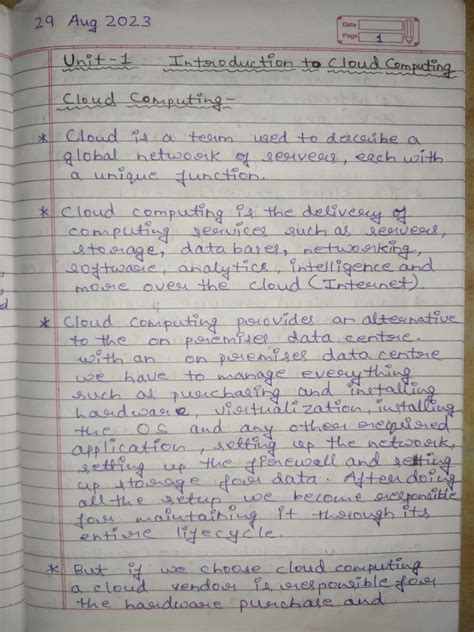 29 Aug 2023
Date
Page 1
Unit-1 Introduction to Cloud Computing
Cloud Computing-
* Cloud is a term used to describe a
global network of servers, each with
a unique function.
* Cloud computing is the delivery of
computing services such as servers,
storage, databases, networking,
software, analytics, intelligence and
more over the cloud (Internet).
* Cloud computing provides an alternative
to the on premises data centre.
with an on premises data centre
we have to manage everything
such as purchasing and installing
hardware, virtualization, installing
the OS and any other required
application, setting up the network,
setting up the firewall and setting
up storage for data. After doing
all the setup we become responsible
for maintaining it through its
entire lifecycle.
* But if we choose cloud computing
a cloud vendor is responsible for
the hardware purchase and